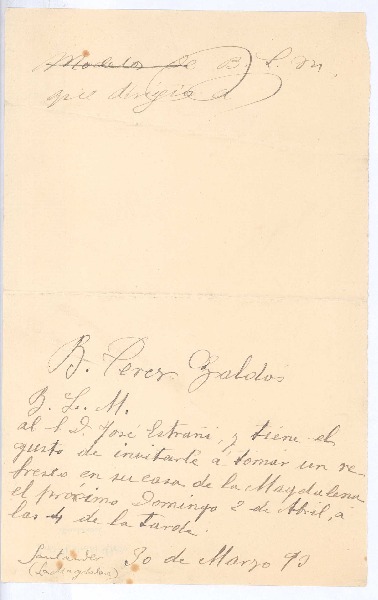 Modelos de B. L. M.
que dirigió a
B. Perez Galdos
B. L. M.
al S. D. José Estrañi, y tiene el
gusto de invitarle á tomar un re-
fresco en su casa de la Magdalena
el próximo Domingo 2 de Abril, á
las 4 de la tarde.
Santander 30 de Marzo 93
(La Magdalena)